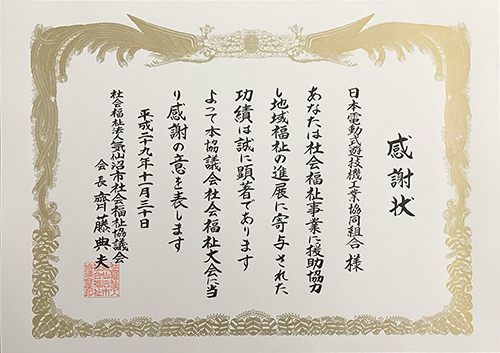 感謝状
日本電動式遊技機工業協同組合 様
あなたは社会福祉事業に援助協力
し地域福祉の進展に寄与された
功績は誠に顕著であります
よって本協議会社会福祉大会に当
り感謝の意を表します
平成二十九年十一月三十日
社会福祉法人気仙沼市社会福祉協議会
会長 齊藤典夫